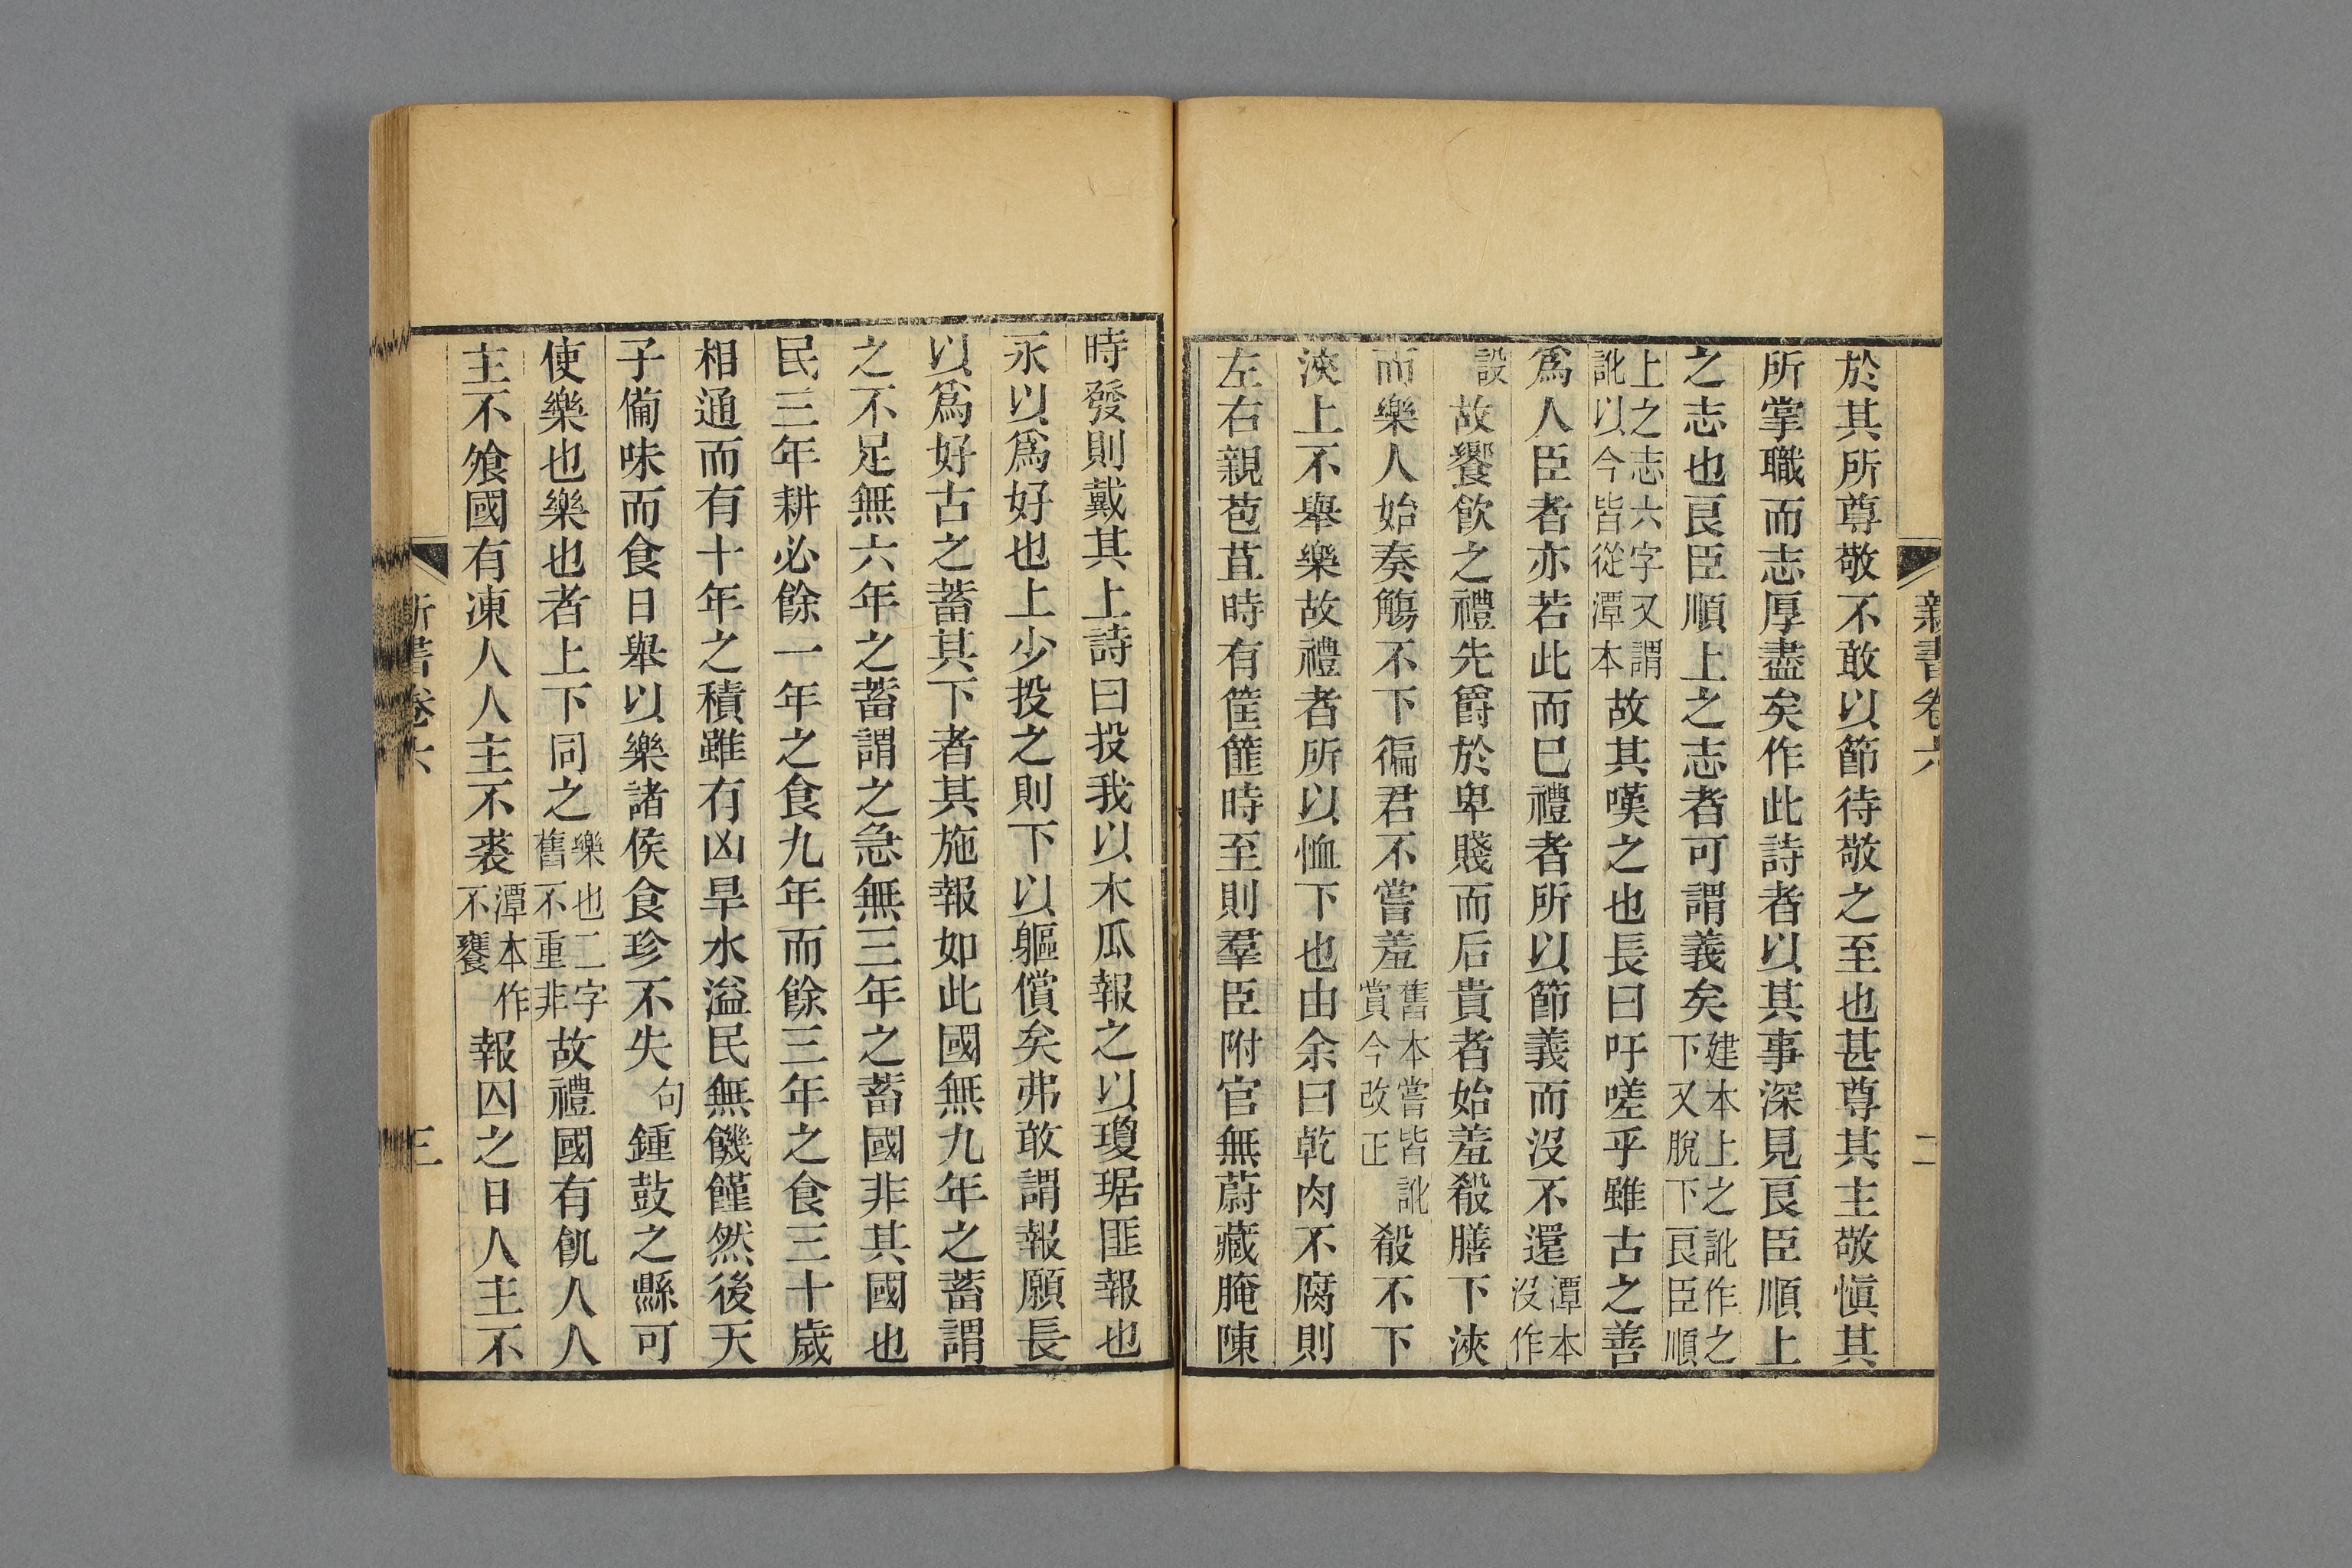 新書卷六
二
於其所尊敬不敢以節待敬之至也甚尊其主敬愼其
所掌職而志厚盡矣作此詩者以其事深見良臣順上
之志也良臣順上之志者可謂義矣建本上之訛作之下又脫下良臣順
上之志六字又謂訛以今皆從潭本故其嘆之也長曰吁嗟乎雖古之善
爲人臣者亦若此而已禮者所以節義而沒不還潭本沒作
設故饗飮之禮先爵於卑賤而后貴者始羞殽膳下浹
而樂人始奏觴不下徧君不嘗羞舊本嘗皆訛賞今改正殽不下
浹上不舉樂故禮者所以恤下也由余曰乾肉不腐則
左右親苞苴時有筐篚時至則羣臣附官無蔚藏腌陳
時發則戴其上詩曰投我以木瓜報之以瓊琚匪報也
永以爲好也上少投之則下以軀償矣弗敢謂報願長
以爲好古之蓄其下者其施報如此國無九年之蓄謂
之不足無六年之蓄謂之急無三年之蓄國非其國也
民三年耕必餘一年之食九年而餘三年之食三十歲
相通而有十年之積雖有凶旱水溢民無饑饉然後天
子備味而食日舉以樂諸侯食珍不失句鍾鼓之縣可
使樂也樂也者上下同之樂也二字舊不重非故禮國有飢人人
主不飧國有凍人人主不裘潭本作不饔報囚之日人主不
新書卷六
三